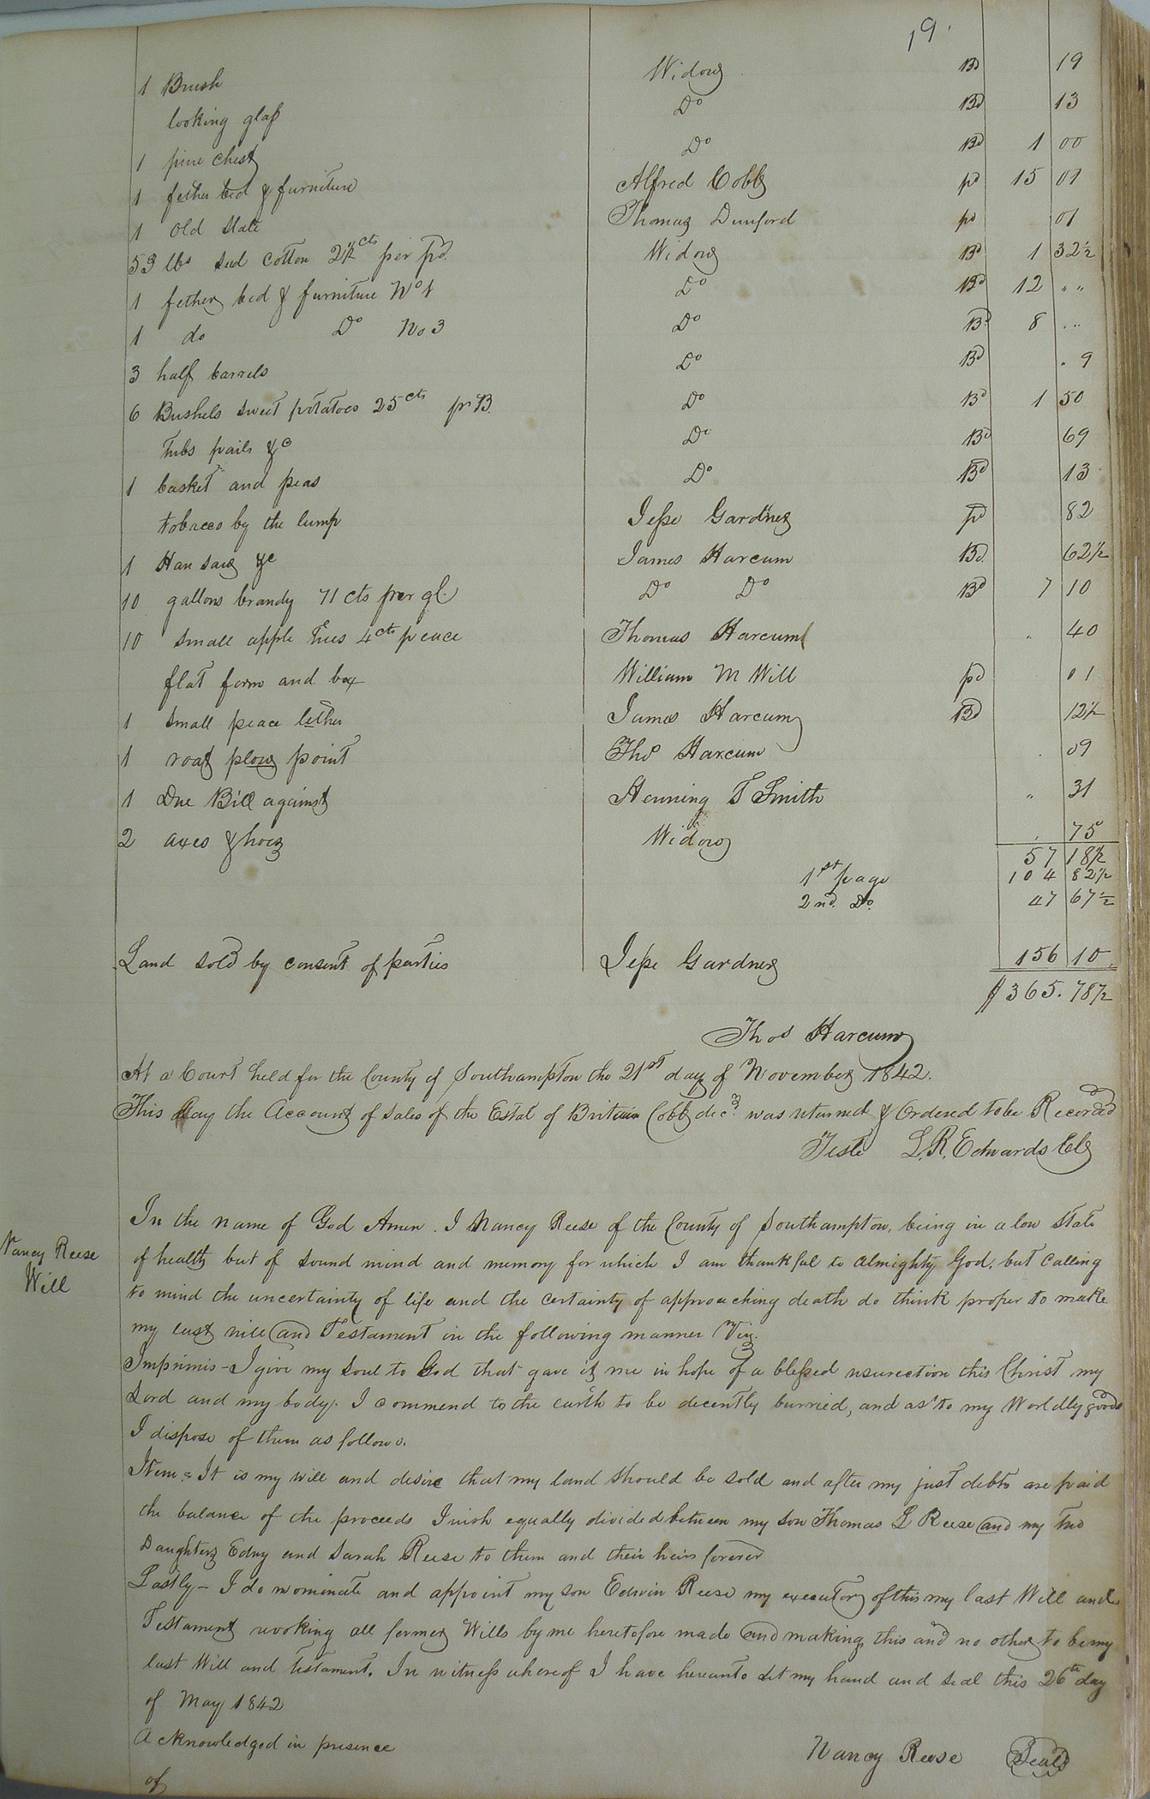 19.
1 Brush Widow Bd 19
looking glass Do Bd 13
1 pine chest Do Bd 1 00
1 fether bed & furniture Alfred Cobb pd 15 01
1 old slate Thomas Dunford pd 01
53 lbs seed cotton 2½ cts per pd. Widow Bd 1 32½
1 fether bed & furniture No 1 Do Bd 12 " "
1 do Do No 3 Do Bd 8 ...
3 half barrels Do Bd . 9
6 Bushels sweet potatoes 25 cts pr B. Do Bd 1 50
Tubs pails &c Do Bd 69
1 basket and peas Do Bd 13
tobacco by the lump Jesse Gardner pd 82
1 Han saw &c James Harcum Bd. 62½
10 gallons brandy 71 cts per gl. Do Do Bd 7 10
10 small apple trees 4 cts peace Thomas Harcum . 40
flat form and box William M Will pd 01
1 small peace lether James Harcum Bd 12½
1 roat plow point Thos Harcum . 09
1 Due Bill against Henning T Smith " 31
2 axes & hoes Widow . 75
57 18½
1st page 104 82½
2nd. Do. 47 67½
Land sold by consent of parties Jesse Gardner 156 10
$365.78½
Thos Harcum
At a Court held for the County of Southampton the 21st day of November 1842.
This day the Account of sales of the Estat of Britain Cobb decd. was returned & Ordered to be Recorded
Teste L. R. Edwards Clk
Nancy Reese
Will
In the name of God Amen. I Nancy Reese of the County of Southampton, being in a low state
of health but of sound mind and memory for which I am thankful to almighty God, but calling
to mind the uncertainty of life and the certainty of approaching death do think proper to make
my last will and Testament in the following manner Viz.
Imprimis - I give my soul to God that gave it me in hope of a blessed resurection this Christ my
Lord and my body. I commend to the earth to be decently burried, and as to my Worldly goods
I dispose of them as follows.
Item = It is my will and desire that my land should be sold and after my just debts are paid
the balance of the proceeds I wish equally divided between my son Thomas L Reese and my two
Daughters Edny and Sarah Reese to them and their heirs forever
Lastly - I do nominate and appoint my son Edwin Reese my executor of this my last Will and
Testament revoking all former Wills by me heretofore made and making this and no other to be my
last Will and testament. In witness whereof I have hereunto set my hand and seal this 26th day
of May 1842
Acknowledged in presence Nancy Reese Seal
of